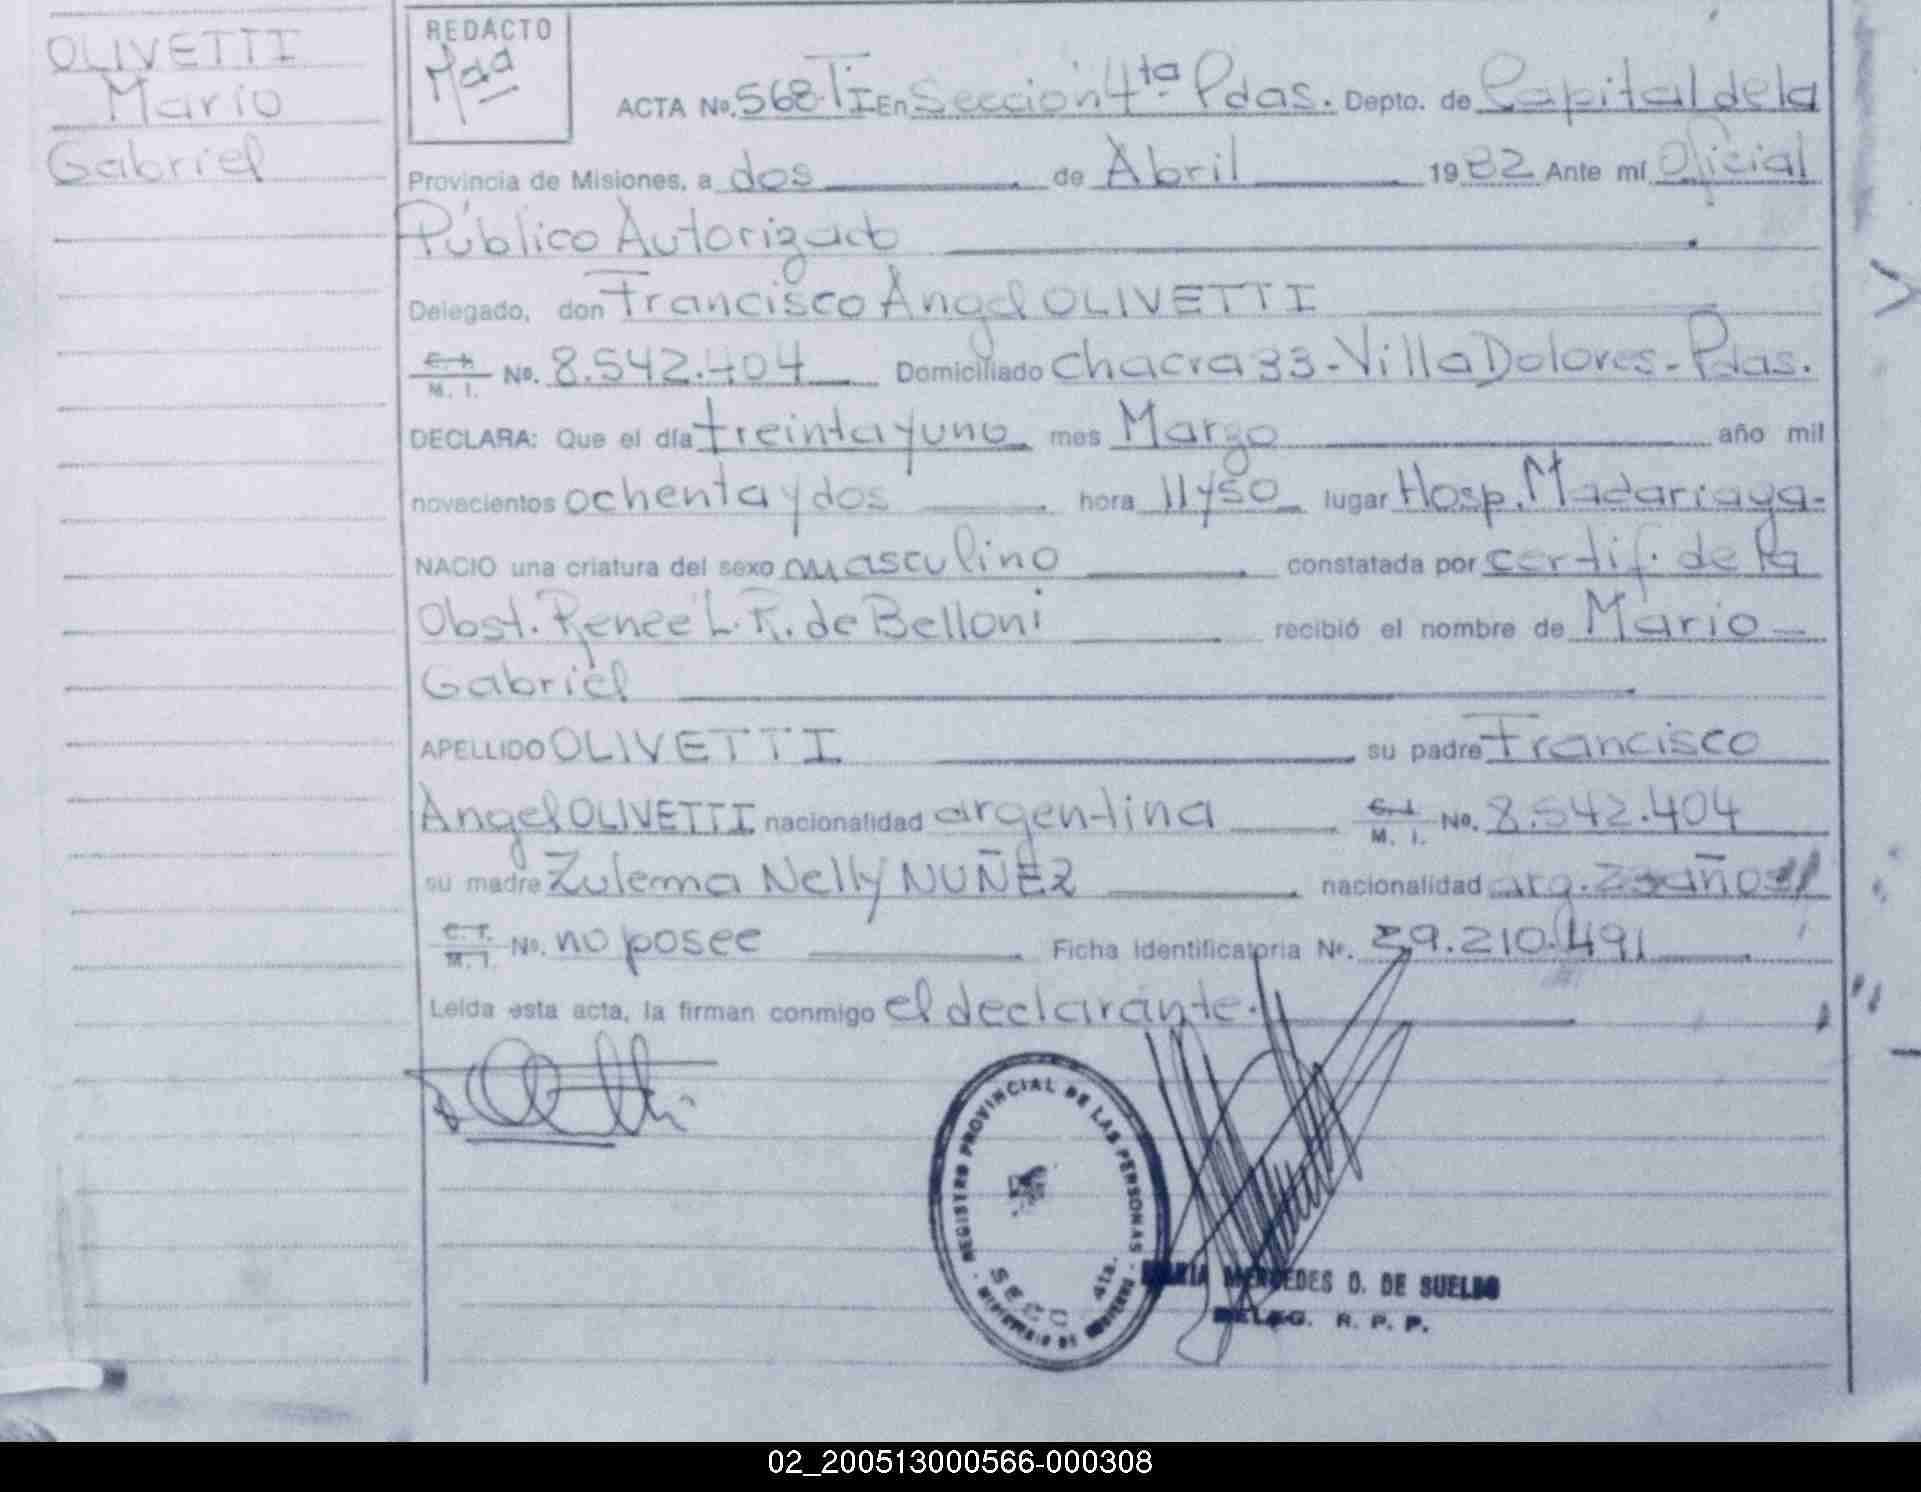 OLIVETTI
Mario
Gabriel
REDACTO
ACTA No. 568-TI En Sección 4ta Pdas. Depto. de Capital de la
Provincia de Misiones, a dos de Abril 1982 Ante mí Oficial
Público Autorizado
Delegado, don Francisco Angel OLIVETTI
M. I. No. 8.542.404 Domiciliado Chacra 33-Villa Dolores-Pdas.
DECLARA: Que el día treinta y uno mes Marzo año mil
novecientos ochenta y dos hora 11 y 50 lugar Hosp. Madariaga-
NACIO una criatura del sexo masculino constatada por certif. de la
Obst. Renee L. R. de Belloni recibió el nombre de Mario
Gabriel
APELLIDO OLIVETTI su padre Francisco
Angel OLIVETTI nacionalidad argentina C. I. M. I. No. 8.542.404
su madre Zulema Nelly NUÑEZ nacionalidad arg. años
C. I. M. I. No. no posee Ficha Identificatoria No. 39.210.491
Leída esta acta, la firman conmigo el declarante.
REGISTRO PROVINCIAL DE LAS PERSONAS
SECC 4ta.
MINISTERIO DE GOBIERNO
MARIA MERCEDES D. DE SUELDO
DELEG. R. P. P.
02_200513000566-000308